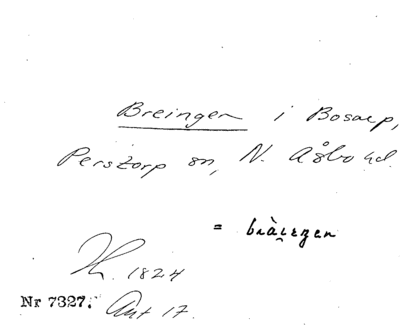 Breingen i Bosarp,
Perstorp sn, N. Åsbo hd.
= bràiŋen
H. 1824
Nr 7327. Ant 17.